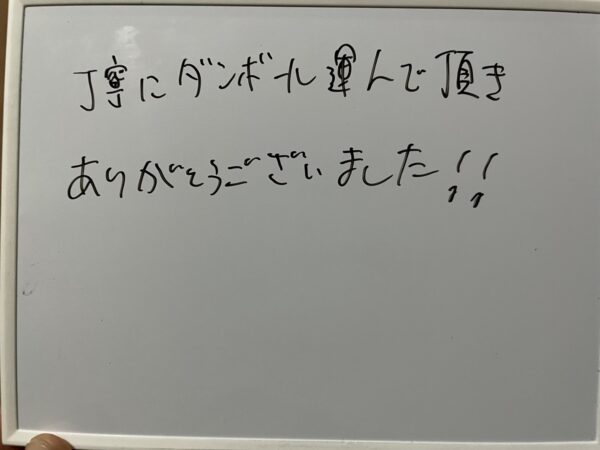 丁寧にダンボール運んで頂き
ありがとうございました!!